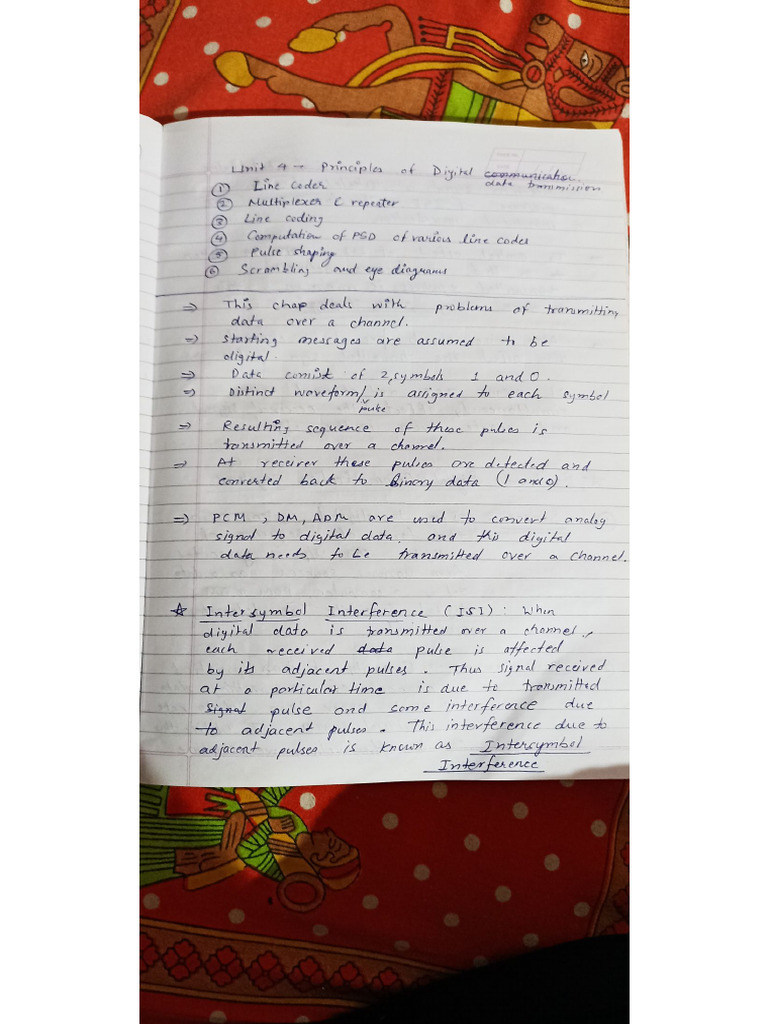 Unit 4 → Principles of Digital communication
data transmission
① Line Coder
② Multiplexer & repeater
③ Line coding
④ Computation of PSD of various line codes
⑤ Pulse shaping
⑥ Scrambling and eye diagrams
⇒ This chap deals with problems of transmitting
data over a channel.
⇒ Starting messages are assumed to be
digital.
⇒ Data consist of 2, symbols 1 and 0.
⇒ Distinct waveform/ is assigned to each symbol
pulse
⇒ Resulting sequence of these pulses is
transmitted over a channel.
⇒ At receiver these pulses are detected and
converted back to binary data (1 and 0).
⇒ PCM, DM, ADM are used to convert analog
signal to digital data. and this digital
data needs to be transmitted over a channel.
☆ Intersymbol Interference (ISI): When
digital data is transmitted over a channel,
each received data pulse is affected
by its adjacent pulses. Thus signal received
at a particular time is due to transmitted
signal pulse and some interference due
to adjacent pulses. This interference due to
adjacent pulses is known as Intersymbol
Interference